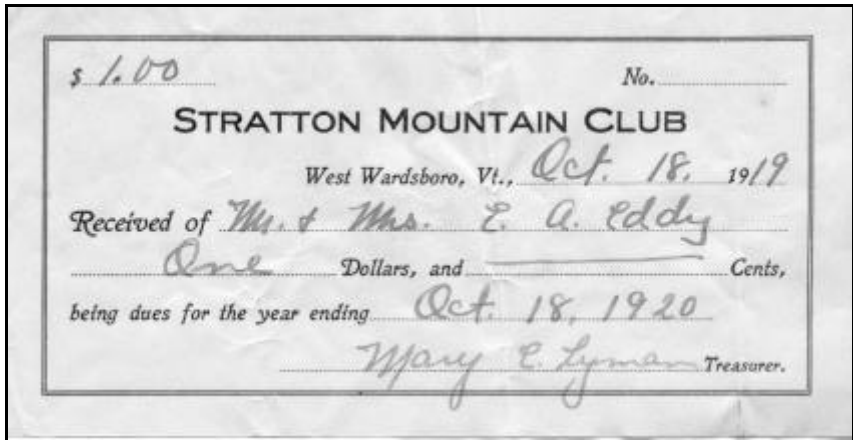 $ 1.00 No.
STRATTON MOUNTAIN CLUB
West Wardsboro, Vt., Oct. 18, 1919
Received of Mr. & Mrs. E. A. Eddy
One Dollars, and Cents,
being dues for the year ending Oct. 18, 1920
Mary E. Lyman Treasurer.